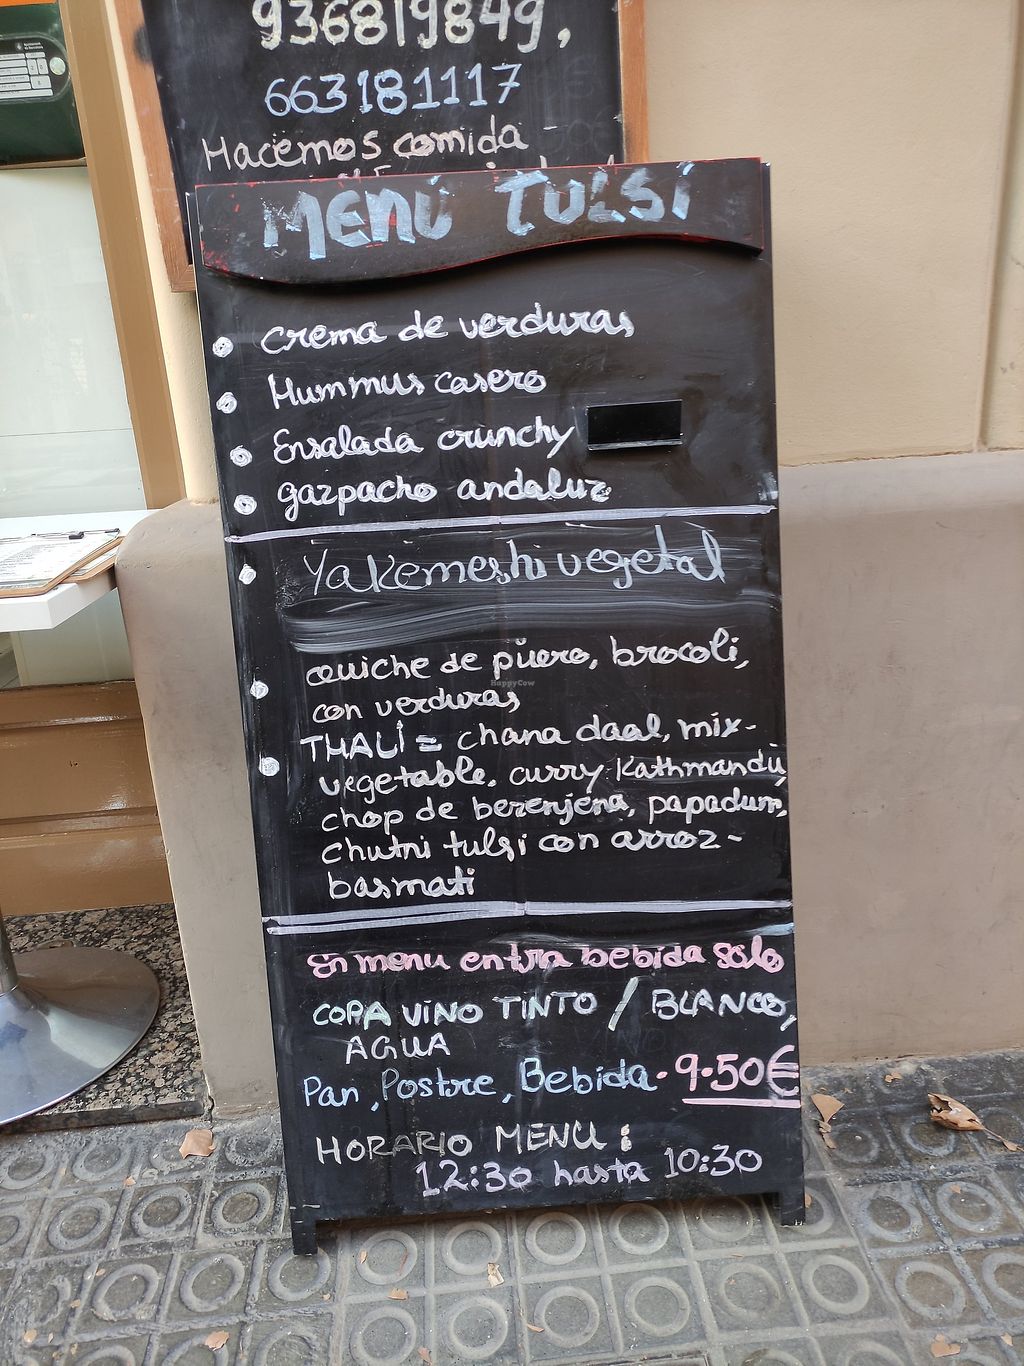 936819849,
663181117
Hacemos comida
MENÚ TULSÍ
crema de verduras
Hummus casero
Ensalada crunchy
gazpacho andaluz
Yakemeshi vegetal
quiche de puero, brocoli,
con verduras
THALÍ = chana daal, mix-
vegetable, curry Kathmandú,
chop de berenjena, papadum,
chutni tulsi con arroz-
basmati
En menu entra bebida solo
COPA VINO TINTO / BLANCO,
AGUA
Pan, Postre, Bebida · 9.50€
HORARIO MENU :
12:30 hasta 10:30
HappyCow